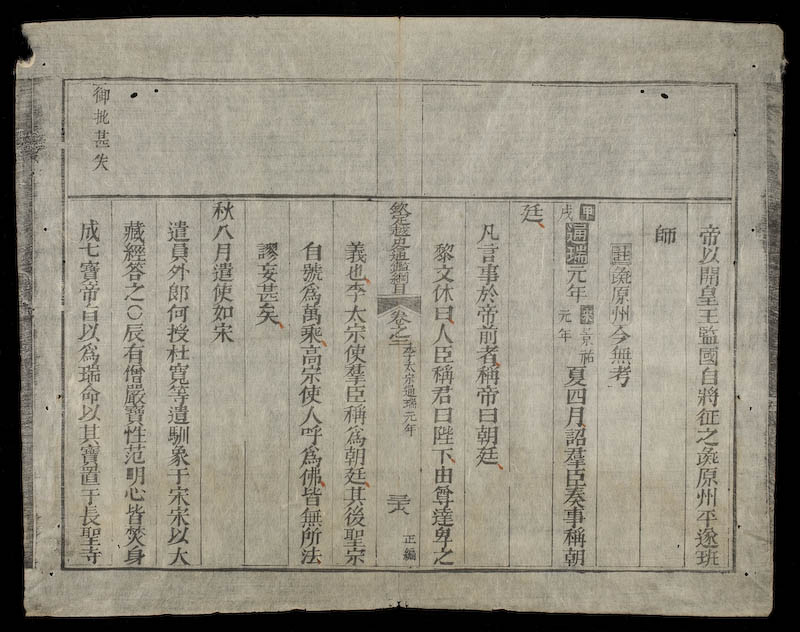 帝以開皇王監國自將征之彘原州平遂班
師
註彘原州今無考
甲戌通瑞元年宋景祐元年夏四月詔羣臣奏事稱朝
廷
凡言事於帝前者稱帝曰朝廷
黎文休曰人臣稱君曰陛下由尊達卑之
欽定越史通鑑綱目 卷之二 李太宗通瑞元年 正編
義也李太宗使羣臣稱爲朝廷其後聖宗
自號爲萬乘高宗使人呼爲佛皆無所法
謬妄甚矣
秋八月遣使如宋
遣員外郎何授杜寬等遣馴象于宋宋以大
藏經答之〇辰有僧嚴寶性范明心皆焚身
成七寶帝自以爲瑞命以其寶置于長聖寺
御批甚失